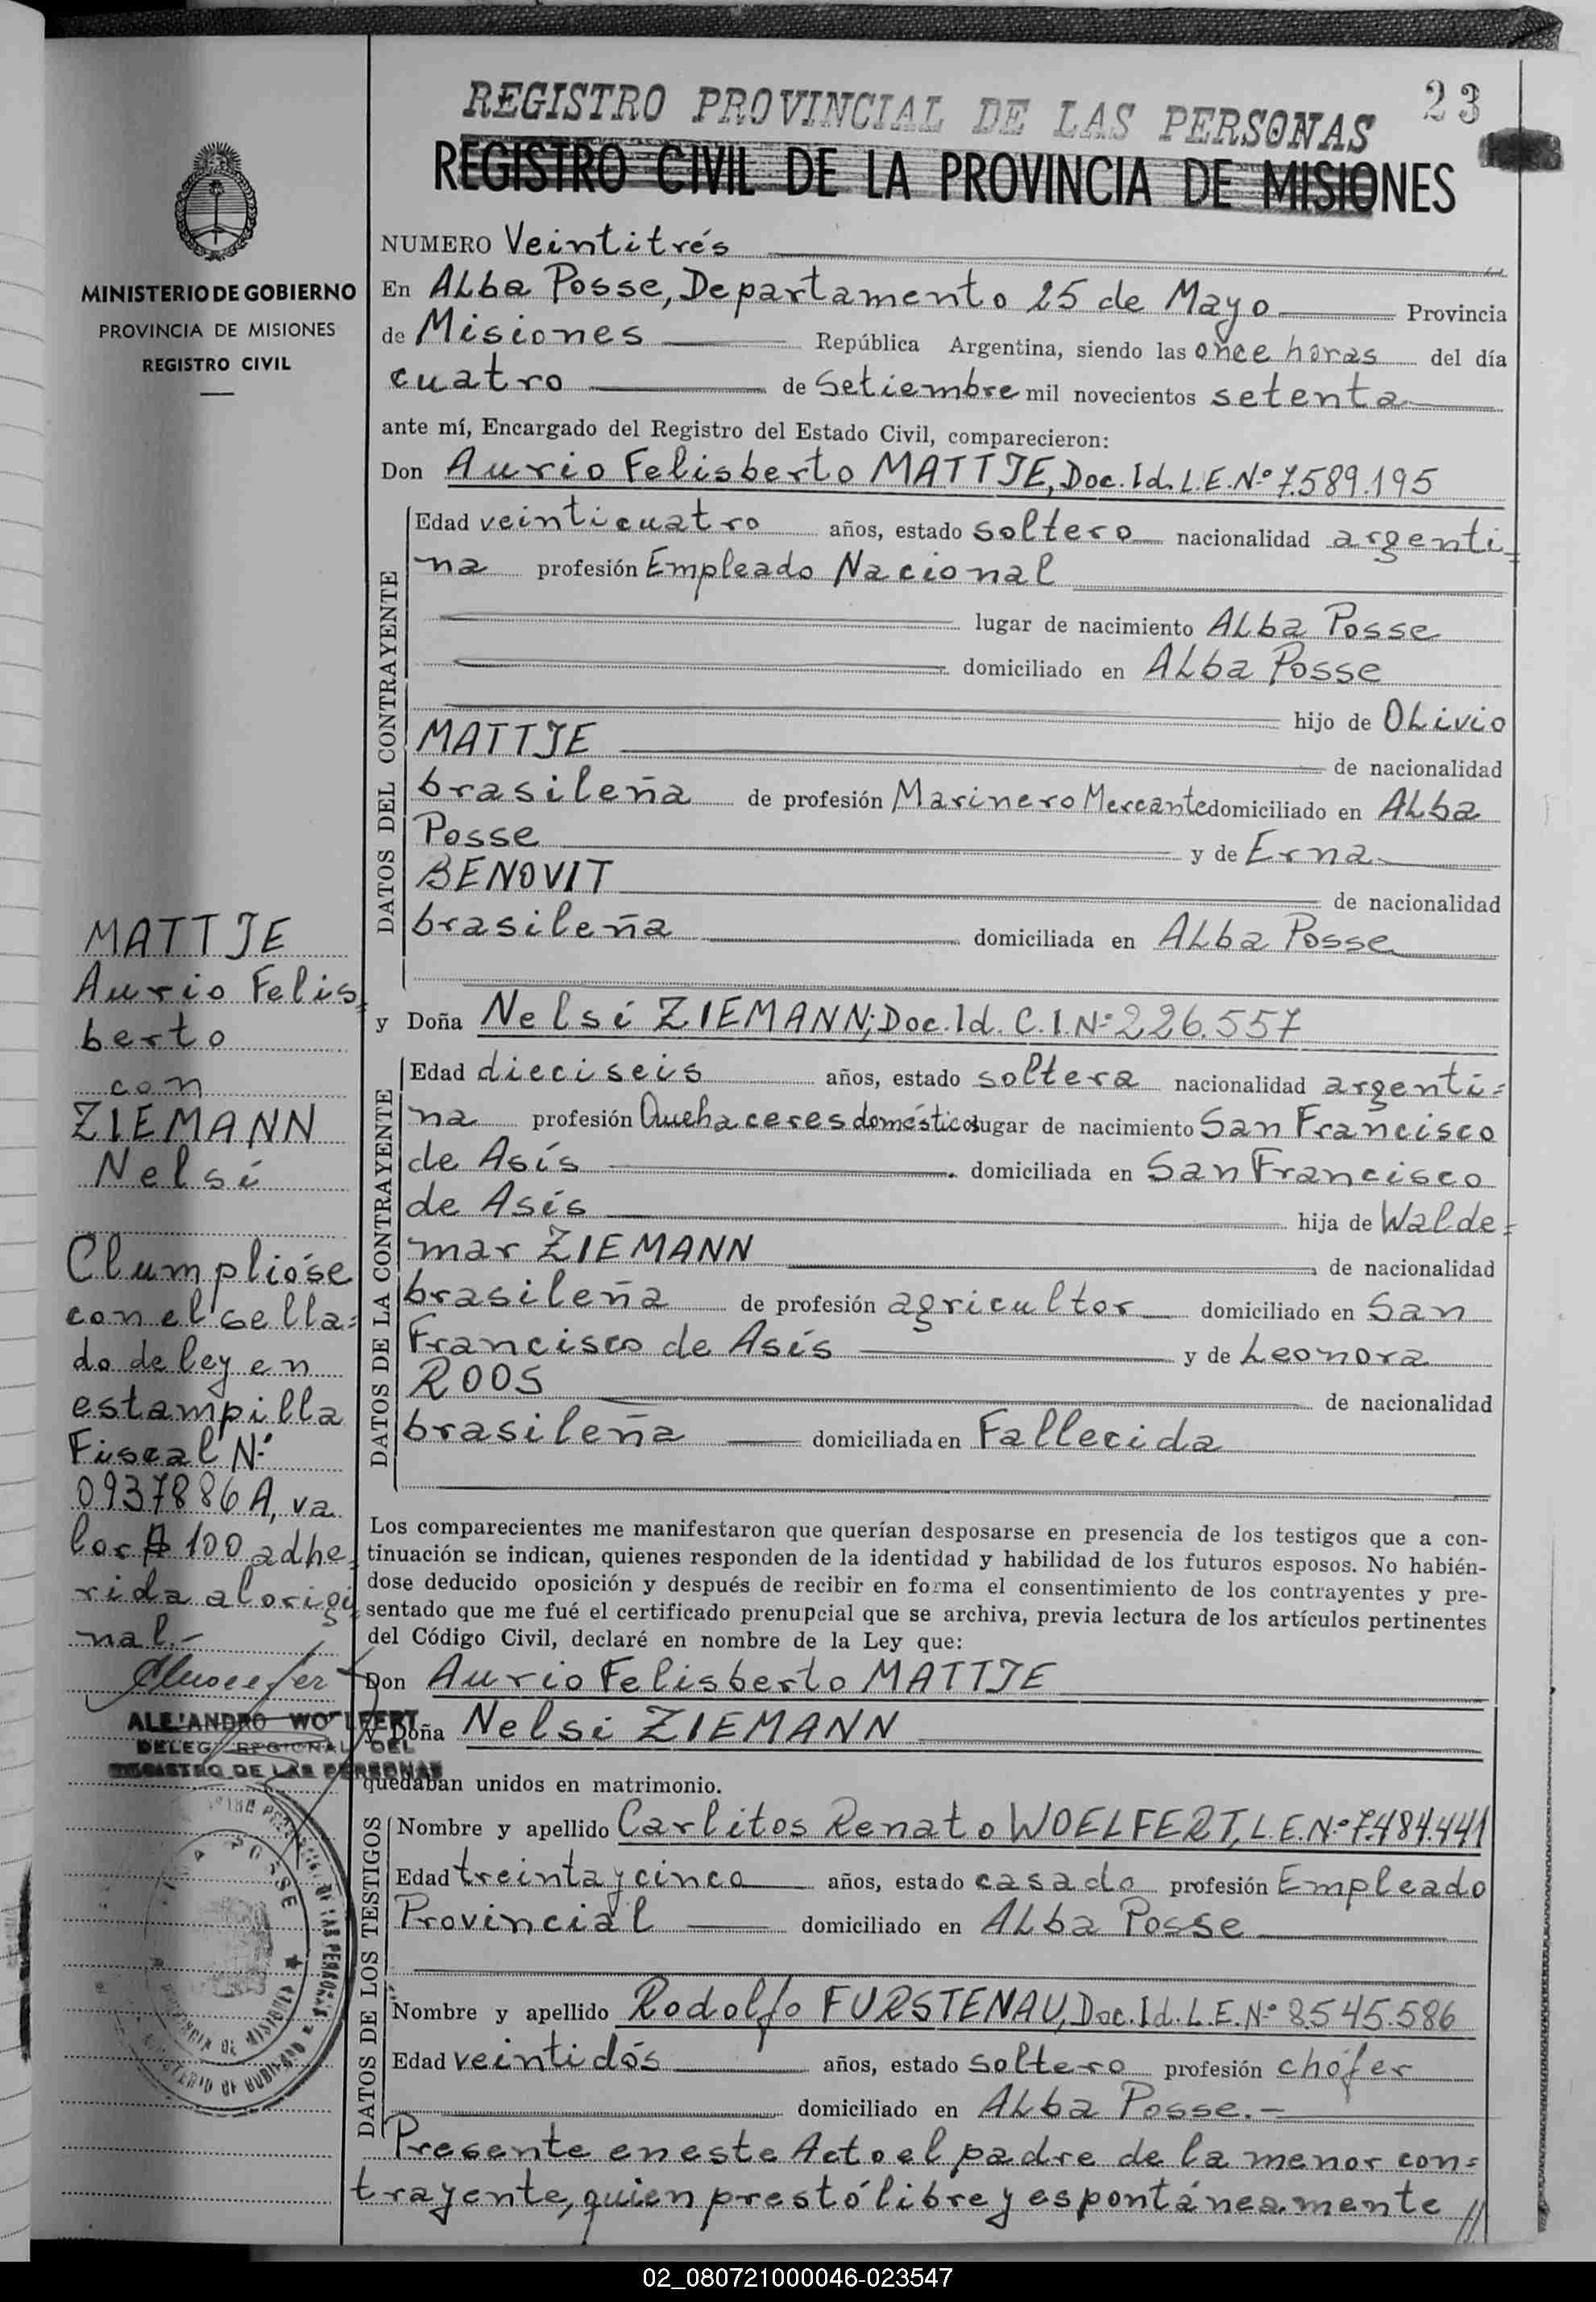 REGISTRO PROVINCIAL DE LAS PERSONAS
23
REGISTRO CIVIL DE LA PROVINCIA DE MISIONES
MINISTERIO DE GOBIERNO
PROVINCIA DE MISIONES
REGISTRO CIVIL
NUMERO Veintitrés
En Alba Posse, Departamento 25 de Mayo Provincia
de Misiones República Argentina, siendo las once horas del día
cuatro de Setiembre mil novecientos setenta
ante mí, Encargado del Registro del Estado Civil, comparecieron:
Don Aurio Felisberto MATTJE, Doc. Id. L.E. Nº 7.589.195
DATOS DEL CONTRAYENTE
Edad veinticuatro años, estado soltero nacionalidad argenti=
na profesión Empleado Nacional
lugar de nacimiento Alba Posse
domiciliado en Alba Posse
hijo de Olivio
MATTJE
de nacionalidad
brasileña de profesión Marinero Mercante domiciliado en Alba
Posse y de Erna
BENOVIT
de nacionalidad
brasileña domiciliada en Alba Posse
y Doña Nelsi ZIEMANN; Doc. Id. C.I. Nº 226.557
DATOS DE LA CONTRAYENTE
Edad dieciseis años, estado soltera nacionalidad argenti=
na profesión Quehaceres domésticos lugar de nacimiento San Francisco
de Asís domiciliada en San Francisco
de Asís hija de Walde=
mar ZIEMANN
de nacionalidad
brasileña de profesión agricultor domiciliado en San
Francisco de Asís y de Leonora
ROOS
de nacionalidad
brasileña domiciliada en Fallecida
Los comparecientes me manifestaron que querían desposarse en presencia de los testigos que a con-
tinuación se indican, quienes responden de la identidad y habilidad de los futuros esposos. No habién-
dose deducido oposición y después de recibir en forma el consentimiento de los contrayentes y pre-
sentado que me fué el certificado prenupcial que se archiva, previa lectura de los artículos pertinentes
del Código Civil, declaré en nombre de la Ley que:
Don Aurio Felisberto MATTJE
y Doña Nelsi ZIEMANN
quedaban unidos en matrimonio.
DATOS DE LOS TESTIGOS
Nombre y apellido Carlitos Renato WOELFERT, L.E. Nº 7.484.441
Edad treinta y cinco años, estado casado profesión Empleado
Provincial domiciliado en Alba Posse
Nombre y apellido Rodolfo FURSTENAU, Doc. Id. L.E. Nº 8.545.586
Edad veintidós años, estado soltero profesión chófer
domiciliado en Alba Posse.-
Presente en este Acto el padre de la menor con=
trayente, quien prestó libre y espontáneamente //
MATTJE
Aurio Felis=
berto
con
ZIEMANN
Nelsi
Clumplióse
con el sella=
do de ley en
estampilla
Fiscal Nº
0937886 A, va
lor $ 100 adhe=
rida al origi=
nal.-
ALEJANDRO WOELFERT
DELEG. REGIONAL DEL
REGISTRO DE LAS PERSONAS
02_080721000046-023547